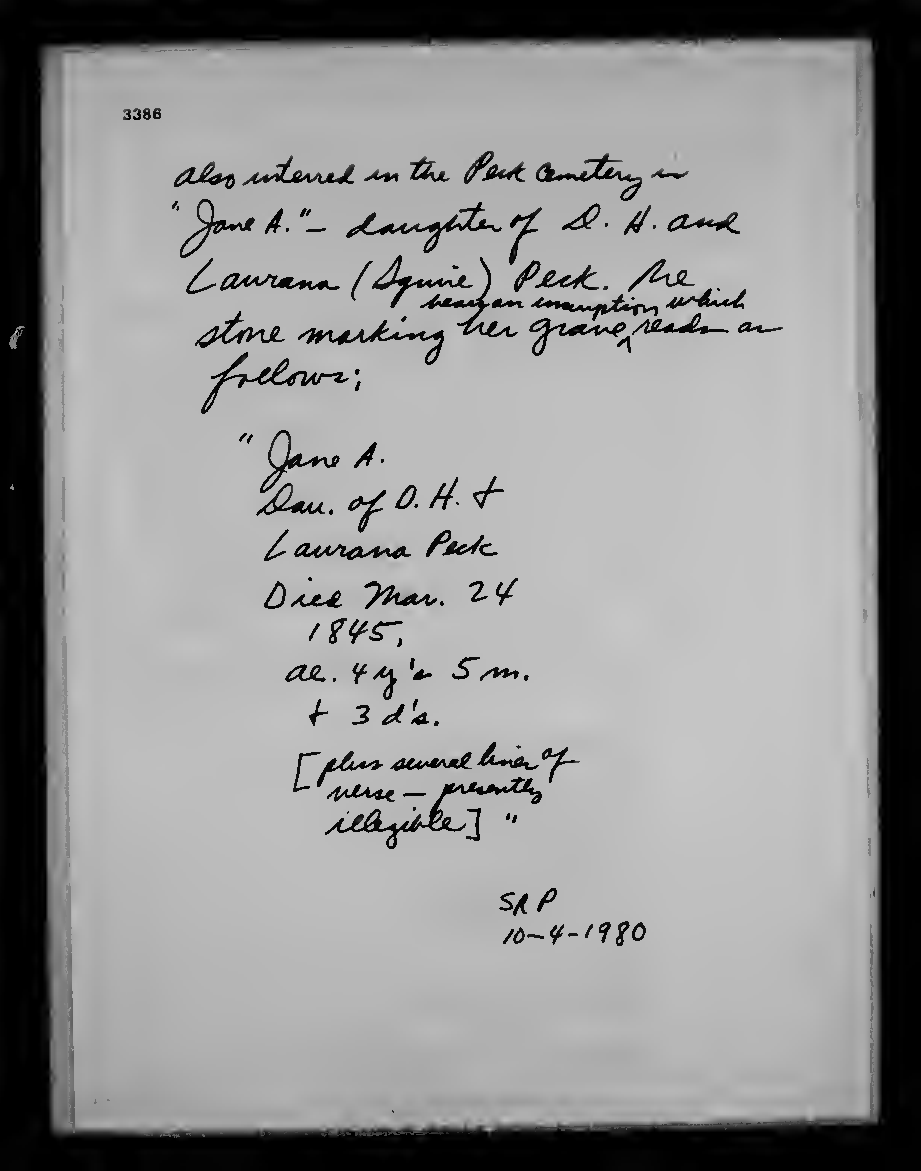 3386
also interred in the Peck Cemetery is
"Jane A." – daughter of D. H. and
Laurana (Squire) Peck. The
bears an inscription which
stone marking her grave ^ reads as
follows;
" Jane A.
Dau. of D. H. +
Laurana Peck
Died Mar. 24
1845,
ae. 4 y's 5 m.
+ 3 d's.
[plus several lines of
verse — presently
illegible] "
SRP
10-4-1980